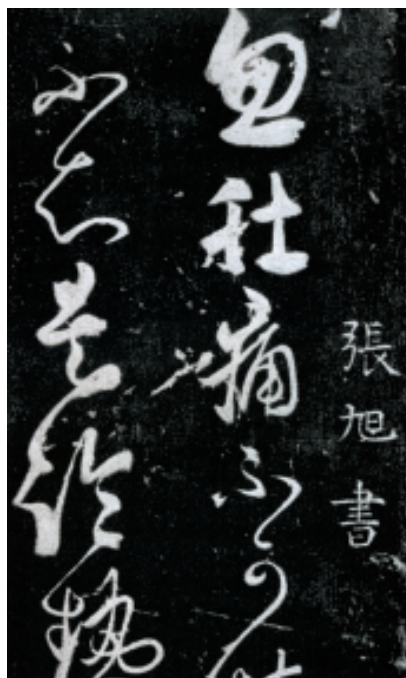 張旭書
忽肚痛不可
不知是冷熱